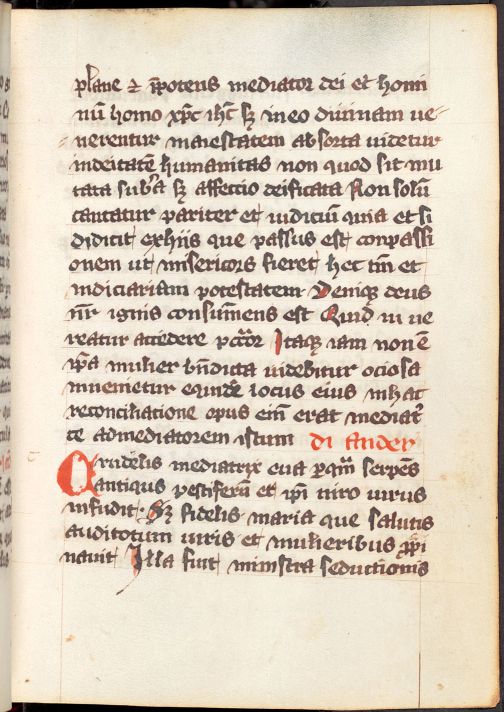 plane et p̄potens mediator dei et homi
nū homo xp̄c ih̄c sꝫ in eo diuinam ue
nerentur maiestatem absorta uidetur
indeitatē humanitas non quod sit mu
tata sub'a sꝫ affectio deificata Non solū
cantatur pariter et iudiciū quia et si
didicit exhiis que passus est conpassi
onem ut misericors fieret hec tm̄ et
iudiciariam potestatem Deniqꝫ deus
nr̄ ignis consumens est Quid ni ue
reatur accedere pctōr Itaqꝫ iam non ē
ip̄a mulier bn̄dicta uidebitur ociosa
inuenietur equidē locus eius in hac
reconciliatione opus eni erat mediat
ce admediatorem istum di ander
Crudelis mediatrix eua p quā serpēs
antiqus pestiferū et ip̄i uiro uirus
infudit Sꝫ fidelis maria que salutis
auditotum uiris et mulieribus p̄pi
nauit Illa fuit ministra seductionis